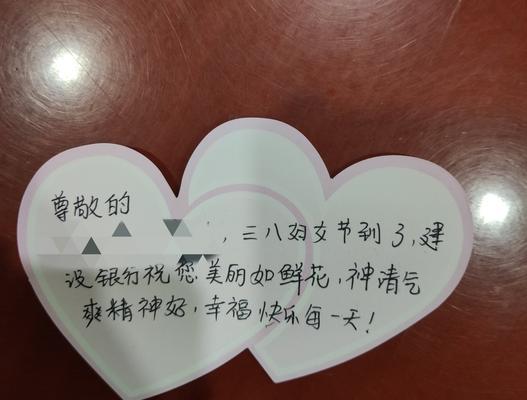 尊敬的
，三八妇女节到了，建
设银行祝您美丽如鲜花，神清气
爽精神好，幸福快乐每一天！